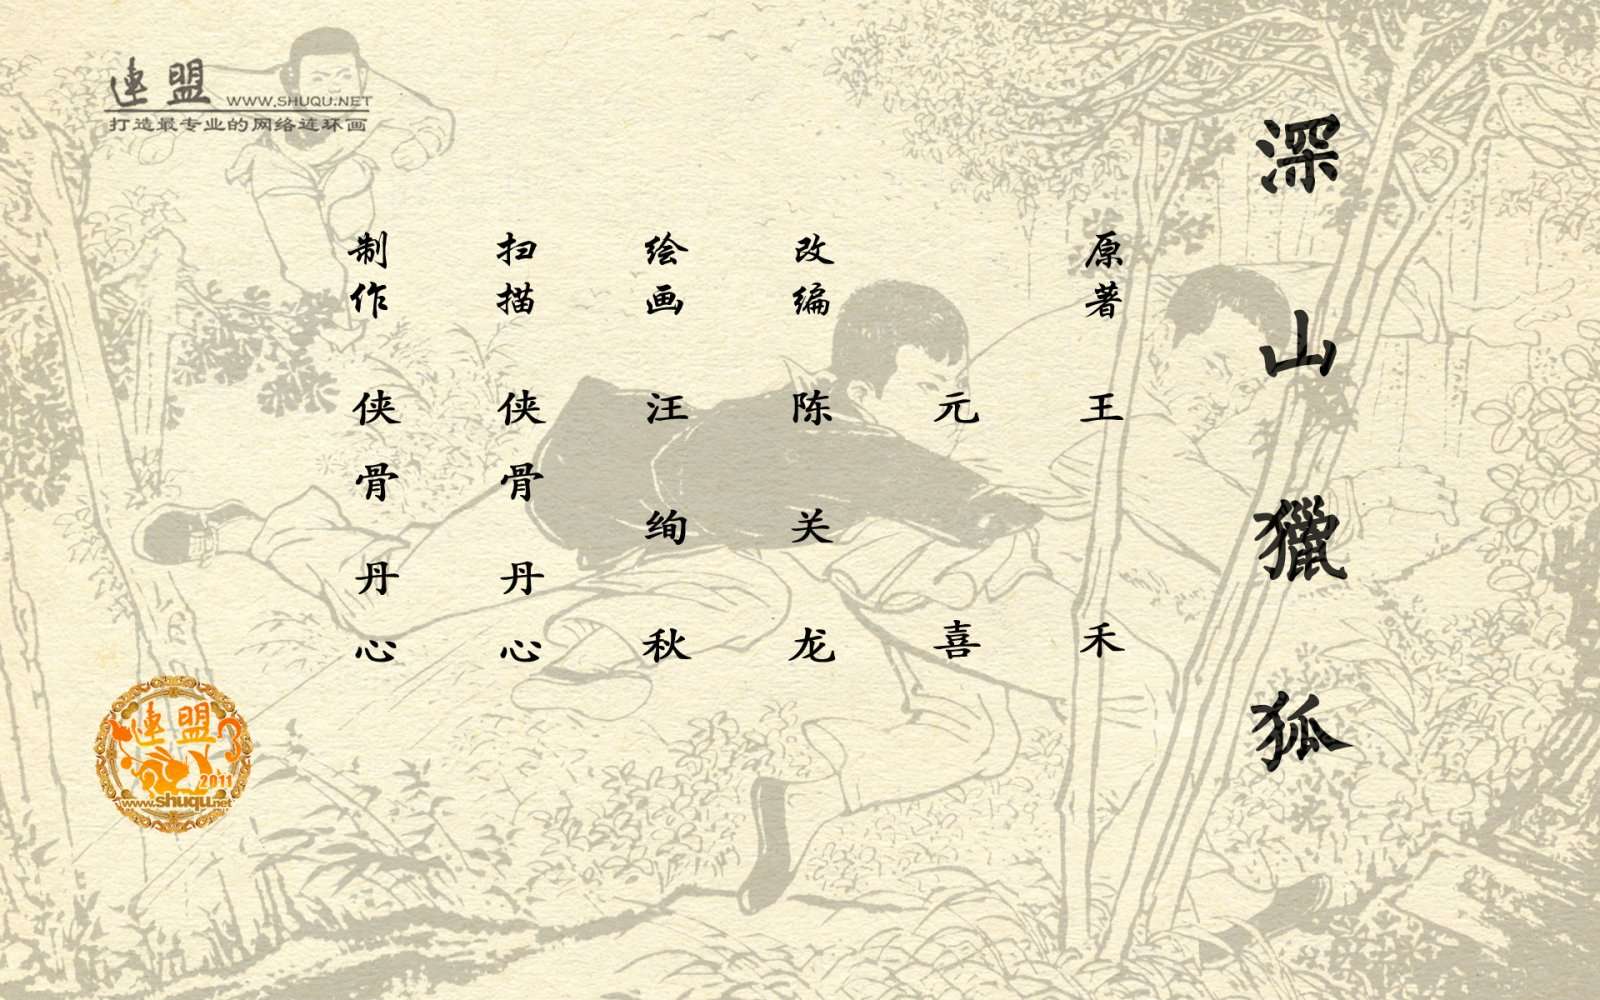 連盟 WWW.SHUQU.NET
打造最专业的网络连环画
深山獵狐
原著 王禾
元喜
改编 陈关龙
绘画 汪绚秋
扫描 侠骨丹心
制作 侠骨丹心
連盟
2011
www.shuqu.net